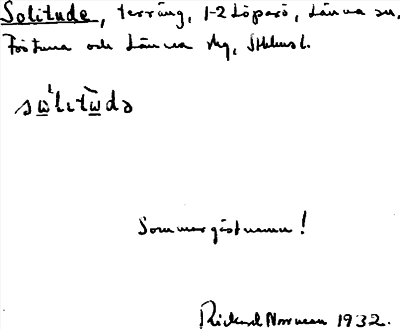 Solitude, terräng, 1-2 Löparö, Länna sn,
Fröstuna och Länna slg, Sthlms l.
sὼ̲lɩtὼ̲də
Sommargästnamn!
Rickard Norrman 1932.